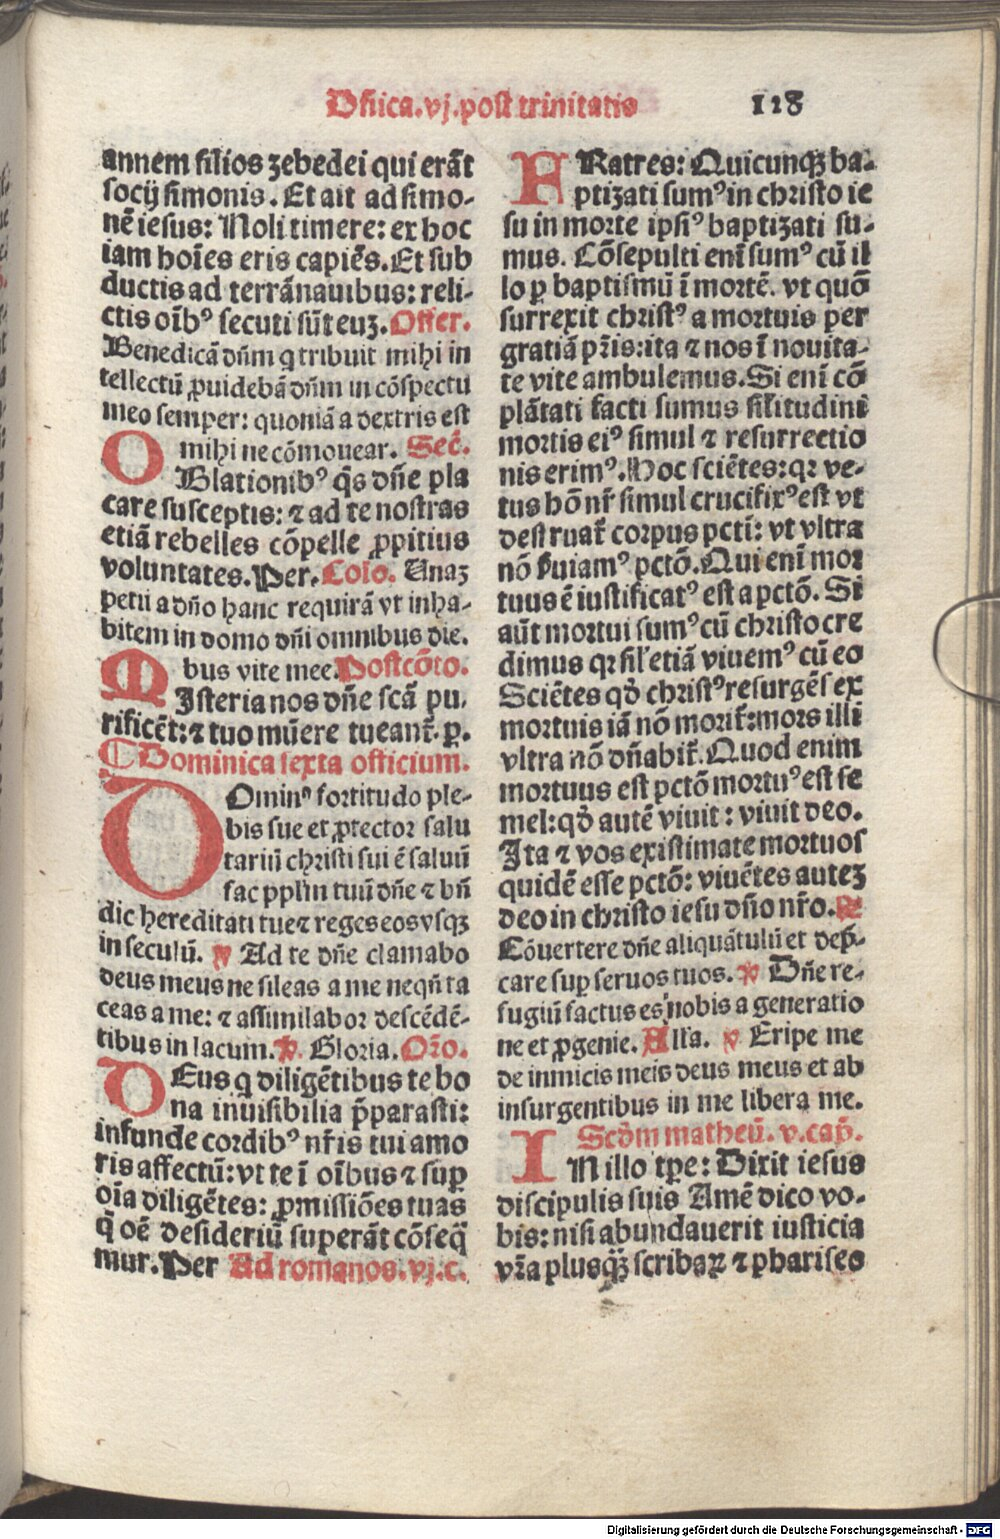 Dn̄ica.vj.post trinitatis 118
annem filios zebedei qui erāt
socij simonis. Et ait ad simo-
nē iesus: Noli timere: ex hoc
iam hoīes eris capiēs. Et sub
ductis ad terrā nauibus: reli-
ctis oībꝰ secuti sūt euz. Offer.
Benedicā dn̄m q tribuit mihi in
tellectū ꝓuidebā dn̄m in cōspectu
meo semper: quoniā a dextris est
mihi ne cōmouear. Sec̄.
OBlationibꝰ q̄s dn̄e pla
care susceptis: ⁊ ad te nostras
etiā rebelles cōpelle ꝓpitius
voluntates. Per. Cōio. Unaz
petii a dn̄o hanc requirā vt inha-
bitem in domo dn̄i omnibus die.
bus vite mee. Postcōto.
MIsteria nos dn̄e scā pu.
rificēt: ⁊ tuo mūere tueant̄. p.
¶ Dominica sexta officium.
DOminꝰ fortitudo ple-
bis sue et ꝓtector salu
tariū christi sui ē saluū
fac pplm̄ tuū dn̄e ⁊ bn̄
dic hereditati tue ⁊ reges eos vsqꝫ
in seculū. ps Ad te dn̄e clamabo
deus meus ne sileas a me neqn̄ ta
ceas a me: ⁊ assimilabor descēdē-
tibus in lacum. ℣. Gloria. Or̄o.
DEus q diligētibus te bo
na inuisibilia p̄parasti:
infunde cordibꝰ nr̄is tui amo
ris affectū: vt te ī oībus ⁊ suꝑ
oīa diligētes: ꝓmissiōes tuas
q̄ oē desideriū superāt cōseq̄
mur. Per Ad romanos. vj. c.
FRatres: Quicunqꝫ ba-
ptizati sumꝰ in christo ie
su in morte ipsiꝰ baptizati su-
mus. Cōsepulti eni̅ sumꝰ cū il
lo ꝑ baptismū ī mortē. vt quō
surrexit christꝰ a mortuis per
gratiā pr̄is: ita ⁊ nos ī nouita-
te vite ambulemus. Si eni̅ cō
plātati facti sumus sil̄itudini
mortis eiꝰ simul ⁊ resurrectio
nis erimꝰ. Hoc sciētes: qꝛ ve-
tus hō nr̄ simul crucifixꝰ est vt
destruat̄ corpus pctī: vt vltra
nō ẜuiamꝰ pctō. Qui eni̅ mor
tuus ē iustificatꝰ est a pctō. Si
aūt mortui sumꝰ cū christo cre
dimus qꝛ sil̄ etiā viuemꝰ cū eo
Sciētes qd̄ christꝰ resurgēs ex
mortuis iā nō morit̄: mors illi
vltra nō dn̄abit̄. Quod enim
mortuus est pctō mortuꝰ est se
mel: qd̄ autē viuit: viuit deo.
Ita ⁊ vos existimate mortuos
quidē esse pctō: viuētes autez
deo in christo iesu dn̄o nr̄o. ℟
Cōuertere dn̄e aliquātulū et dep̄-
care suꝑ seruos tuos. ℣ Dn̄e re-
fugiū factus es nobis a generatio
ne et ꝓgenie. All'a. ℣ Eripe me
de inimicis meis deus meus et ab
insurgentibus in me libera me.
Scd̄m matheū. v. cap̄.
IN illo tpe: Dixit iesus
discipulis suis Amē dico vo-
bis: nisi abundauerit iusticia
vr̄a plusqꝫ scribaꝝ ⁊ phariseo
Digitalisierung gefördert durch die Deutsche Forschungsgemeinschaft - DFG